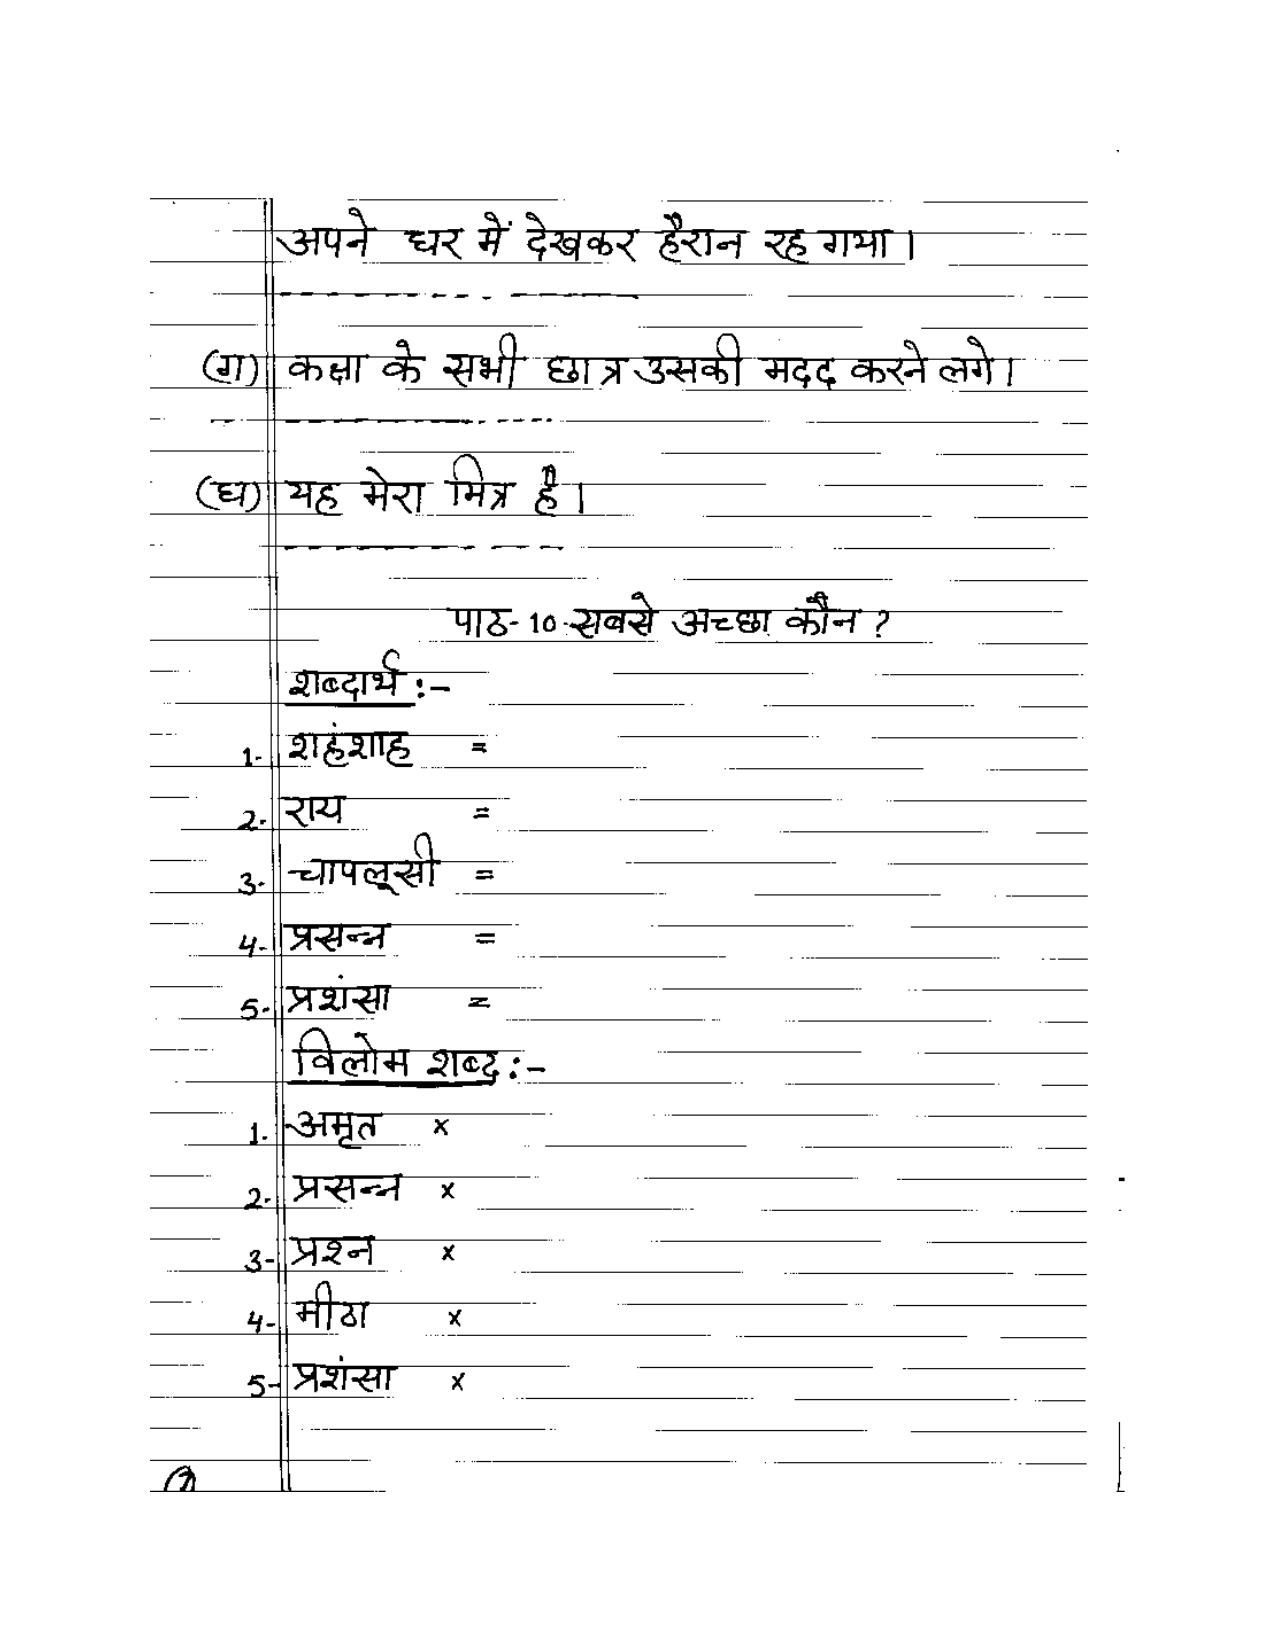 अपने घर में देखकर हैरान रह गया।
(ग) कक्षा के सभी छात्र उसकी मदद करने लगे।
(घ) यह मेरा मित्र है।
पाठ-10 सबसे अच्छा कौन?
शब्दार्थ :-
1. शहंशाह =
2. राय =
3. चापलूसी =
4. प्रसन्न =
5. प्रशंसा =
विलोम शब्द :-
1. अमृत ×
2. प्रसन्न ×
3- प्रश्न ×
4- मीठा ×
5- प्रशंसा ×